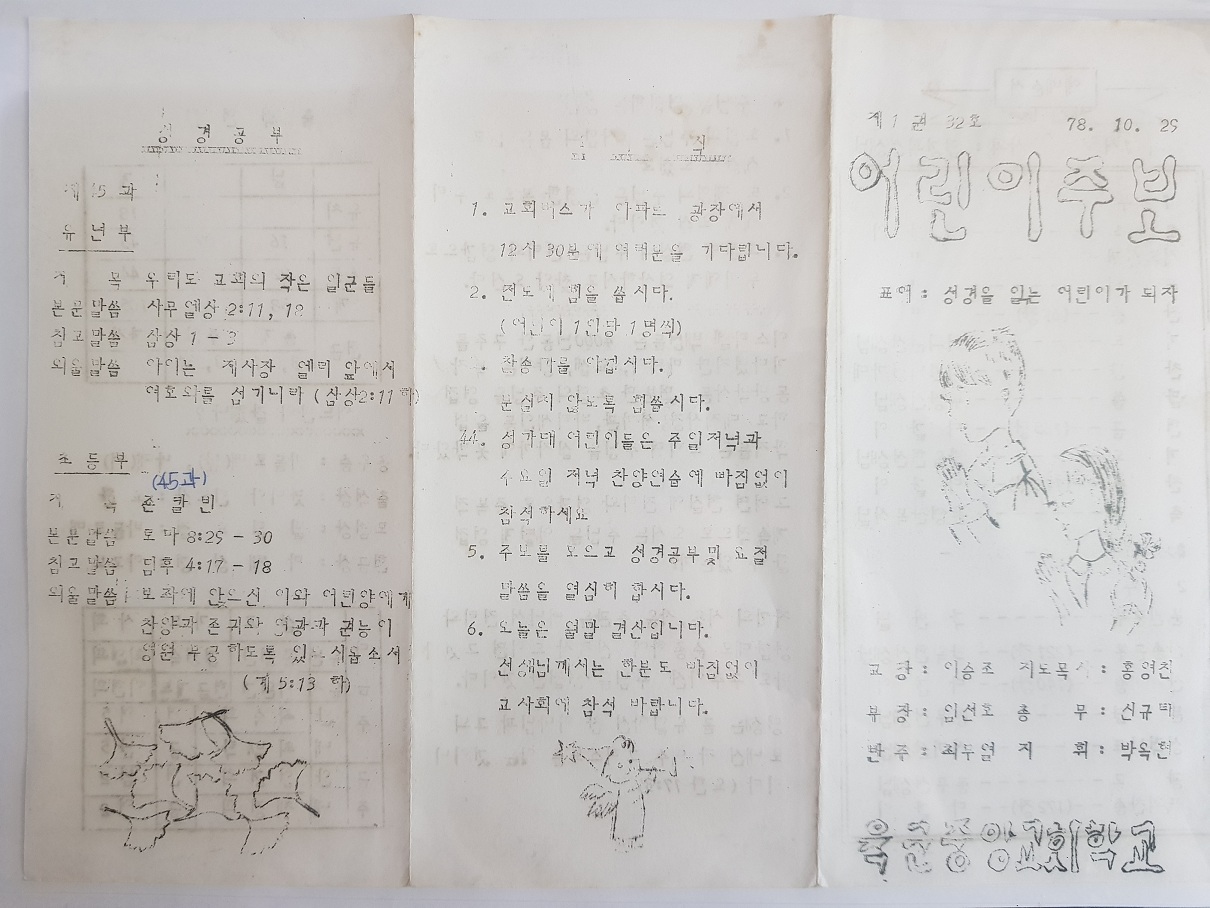 성 경 공 부
제 15 과
유 년 부
제 목 우리도 교회의 작은 일군들
본문말씀 사무엘상 2:11, 18
참고말씀 삼상 1 - 3
외울말씀 아이는 제사장 엘리 앞에서
여호와를 섬기니라 (삼상2:11 하)
초 등 부
(45과)
제 목 존 칼 빈
본문말씀 로마 8:29 - 30
참고말씀 딤후 4:17 - 18
외울말씀: 보좌에 앉으신 이와 어린양에게
찬양과 존귀와 영광과 권능이
영원 무궁하도록 있 시옵소서
(계 5:13 하)
식
1. 교회버스가 아파트 광장에서
12시 30분에 여러분을 기다립니다.
2. 전도에 힘을 씁시다.
(어린이 1인당 1명씩)
찬송가를 아낍시다.
분실되지 않도록 힘씁시다.
44. 성가대 어린이들은 주일저녁과
수요일 저녁 찬양연습에 빠짐없이
참석하세요
5. 주보를 모으고 성경공부및 요절
말씀을 열심히 합시다.
6. 오늘은 월말 결산입니다.
선생님께서는 한분도 빠짐없이
교사회에 참석 바랍니다.
제 1 권 32호 78. 10. 29
어린이주보
표어: 성경을 읽는 어린이가 되자
교 장 : 이승조 지도목사 : 홍영친
부 장 : 임선호 총 무 : 신규탁
반 주 : 최두열 지 휘 : 박옥현
중앙교회학교